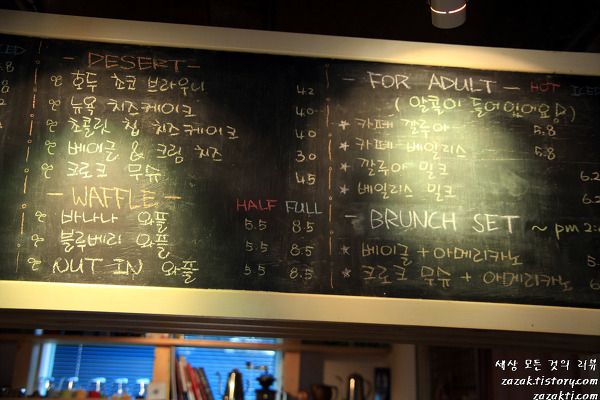 ICED
5.8
- DESERT -
호두 쵸코 브라우니 4.2
뉴욕 치즈케이크 4.0
쵸콜릿 칩 치즈케이크 4.0
베이글 & 크림 치즈 3.0
크로크 무슈 4.5
- WAFFLE - HALF FULL
바나나 와플 5.5 8.5
블루베리 와플 5.5 8.5
NUT IN 와플 5.5 8.5
- FOR ADULT - HOT ICED
(알콜이 들어있어요!)
★ 카페 깔루아 5.8
★ 카페 베일리스 5.8
★ 깔루아 밀크 6.2
★ 베일리스 밀크 6.2
- BRUNCH SET ~ pm 2:
★ 베이글 + 아메리카노 5.
★ 크로크 무슈 + 아메리카노 6.
세상 모든 것의 리뷰
zazak.tistory.com
zazakti.com